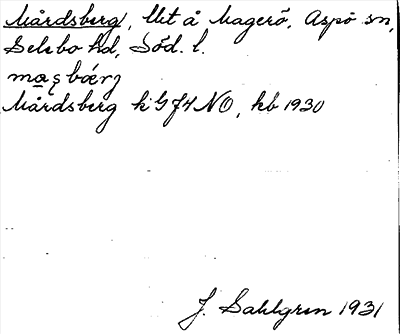 Mårdsberg, Ut å Magerö, Aspö sn,
Selebo hd, Söd. l.
Mårdsberg kG J4 NO, kb 1930
J. Sahlgren 1931